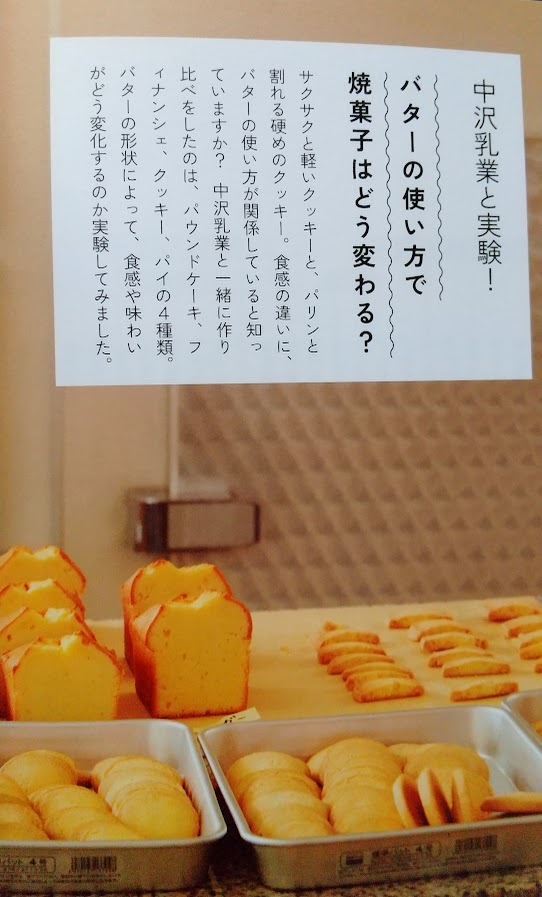 中沢乳業と実験!
バターの使い方で
焼菓子はどう変わる?
サクサクと軽いクッキーと、パリンと
割れる硬めのクッキー。食感の違いに、
バターの使い方が関係していると知っ
ていますか? 中沢乳業と一緒に作り
比べをしたのは、パウンドケーキ、フ
ィナンシェ、クッキー、パイの4種類。
バターの形状によって、食感や味わい
がどう変化するのか実験してみました。
バット 4号
標準バット 4号